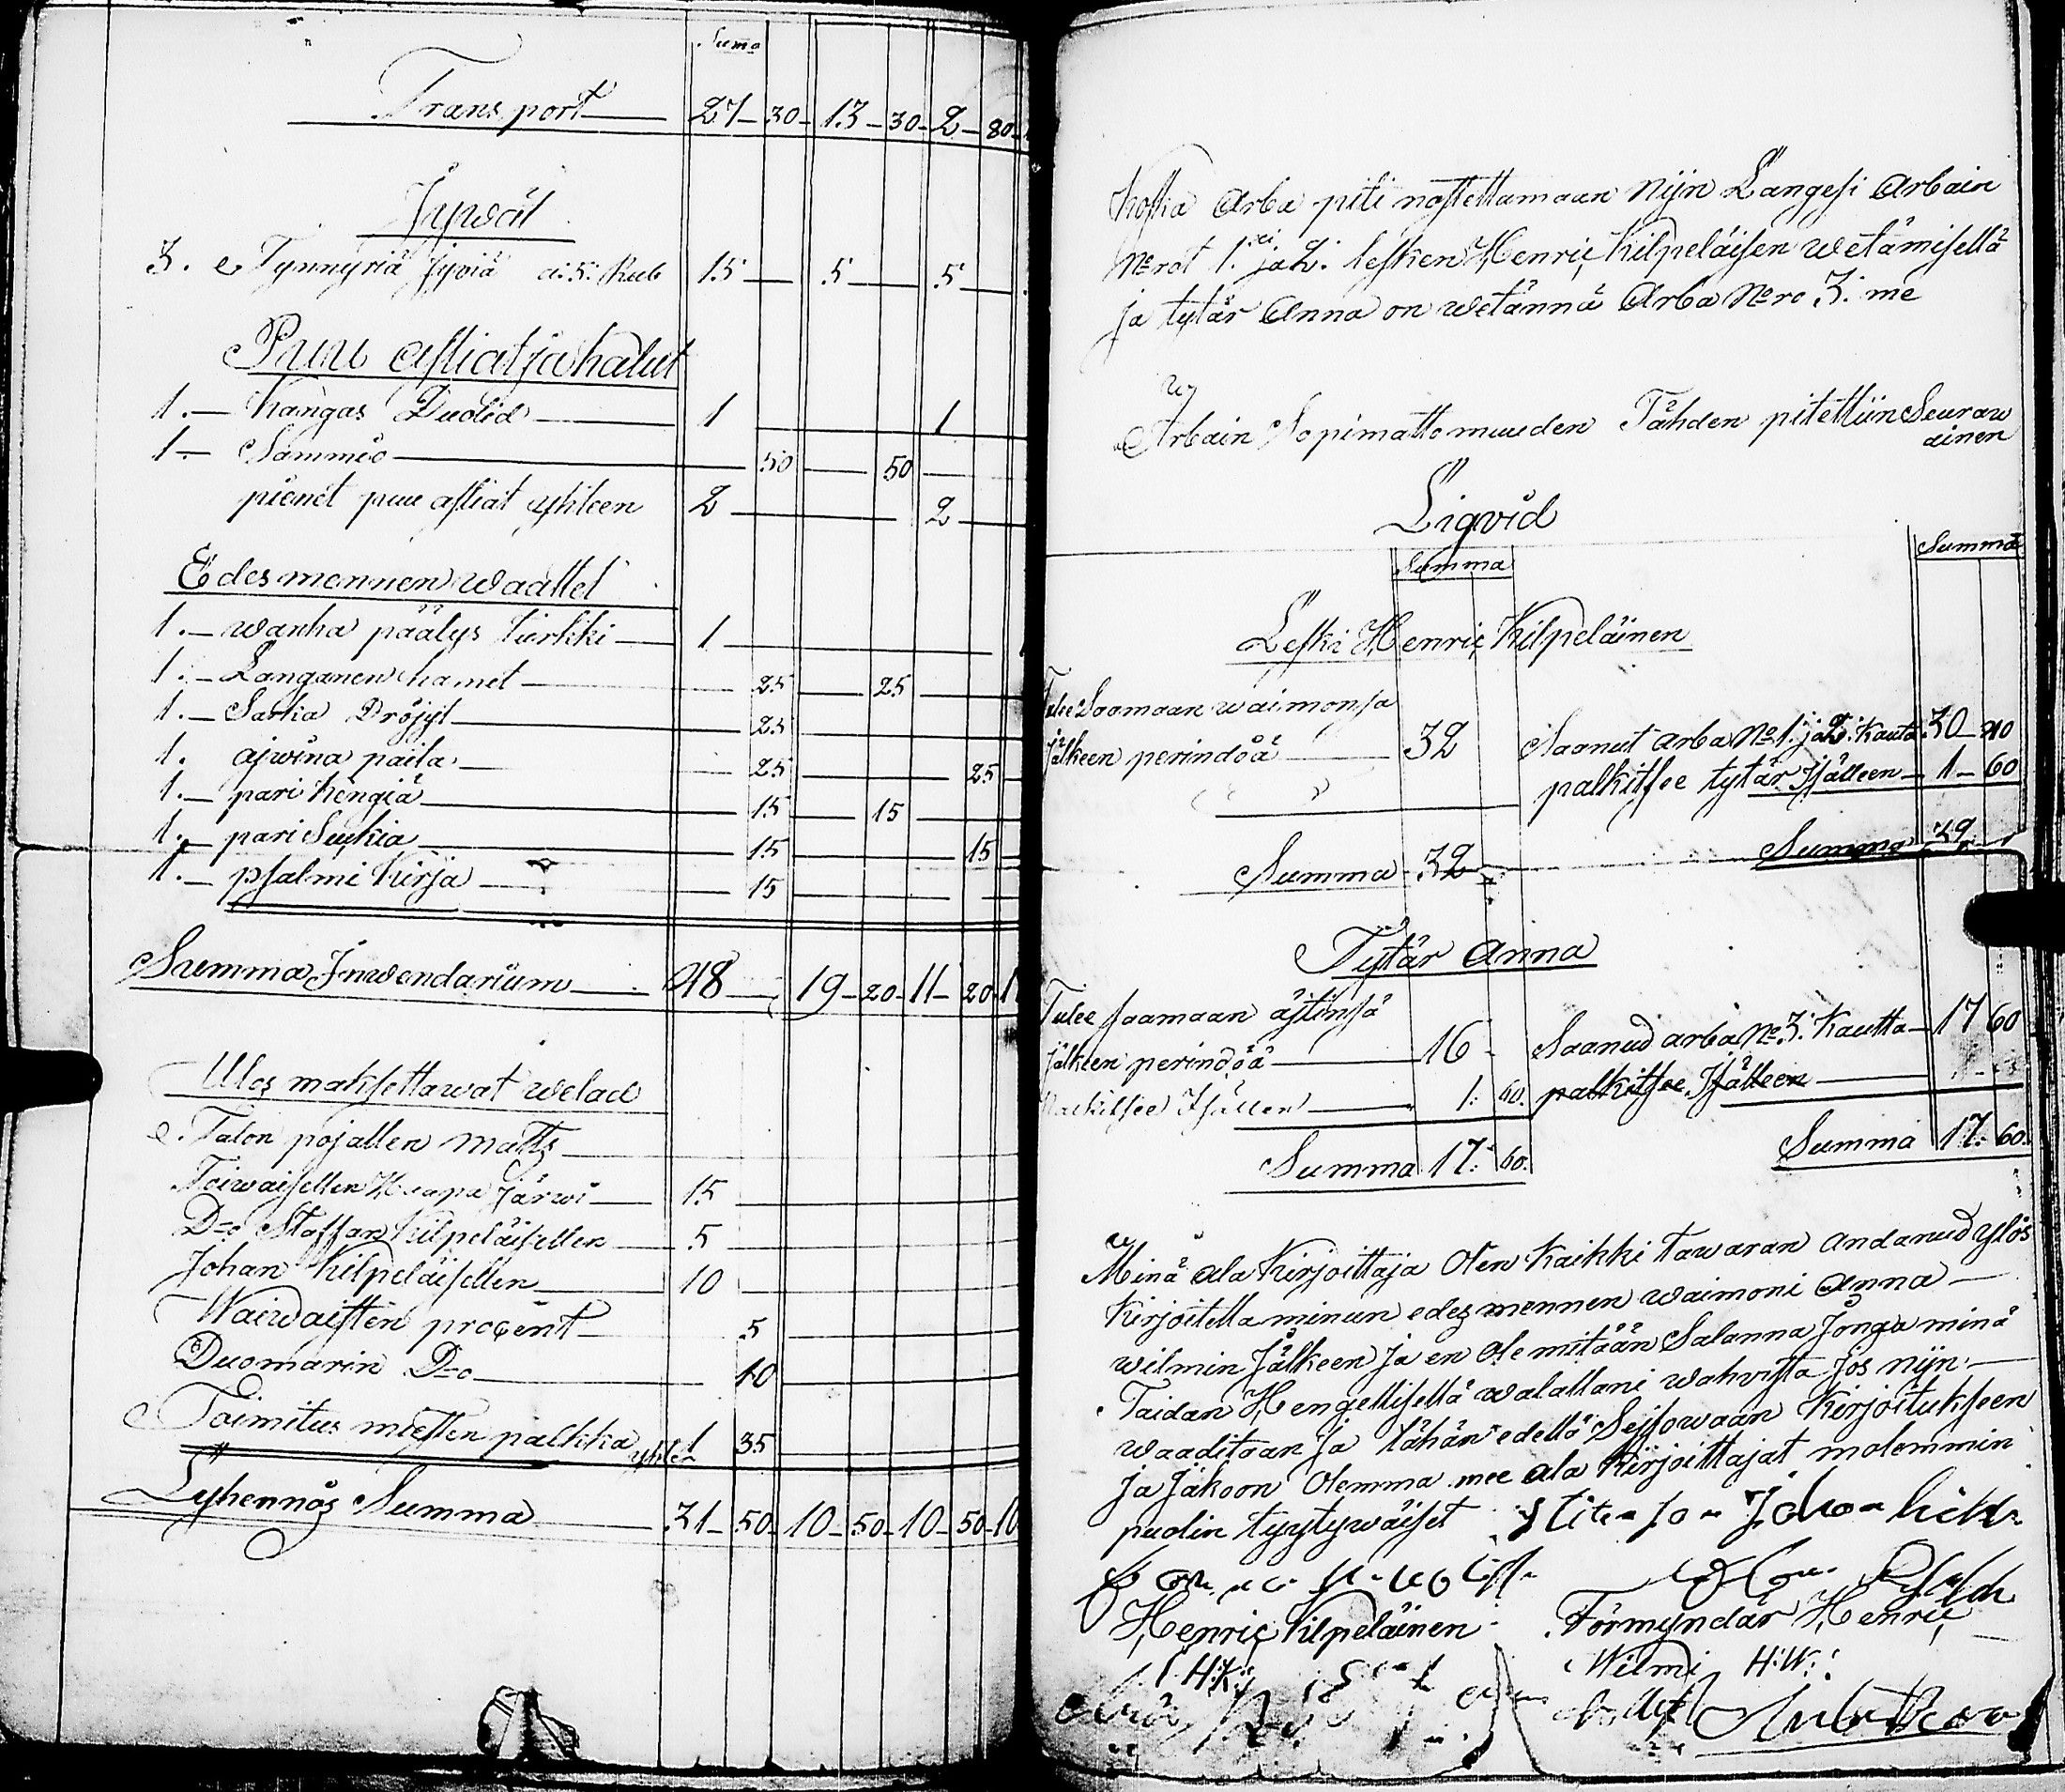 Suma
Transport 27-30-13-30-2-80-
Jywät
3. Tynnyriä Jyviä a: 5: Rub 15 5 5
Puu astiat ja halut
1.- Kangas Duolid 1 1
1- Sammio 50 50
pienet puu astiat yhteen 2 2
Edesmennen waattet
1.- wanha päälys turkki 1
1.- Langanen hamet 25 25
1.- Sarka Dröjyt 25
1. ajwina paita 25 25
1.- pari Kengiä 15 15
1.- pari Sukkia 15 15
1.- psalmi Kirja 15
Summa Inwendarium 48 19-20-11-20-1
Ulos maksettawat welad
Talon pojallen Matts
Toiwaisellen Haapa Järwi 15
D=o Staffan Kilpeläisellen 5
Johan Kilpeläisellen 10
Waiwaisten procent 5
Duomarin D=o 10
Toimitus miesten palkka yhten 1 35
Lyhennös Summa 31-50-10-50-10-50-10
Koska Arba piti nostettamaan Nijn Langesi Arbain
Nrot 1. ja 2. lesken Henric Kilpeläisen wetämisellä
ja tytär Anna on wetännä Arba Nro 3: me
Arbain Sopimattomuuden Tähden pitettiin Seuraw
ainen
Liqvid
Summa Summa
Leski Henric Kilpeläinen
Tulee Saamaan waimonsa
Jälkeen perindöä 32 Saanut arba No 1. ja 2: kauta 30-40
palkitsee tytär Isälleen 1-60
Summa 32 Summa 32
Tytär Anna
Tulee saamaan äjtinsä
Jälkeen perindöä 16 Saanud arba No 3. Kautta 17 60
Palkitsee Isällen 1: 60. palkitsee Isälleen
Summa 17: 60. Summa 17: 60.
Minä ala Kirjoittaja Olen Kaikki tawaran andanud ylös
Kirjoitella minun edesmennen waimoni Anna
wilmin Jälkeen ja en ole mitään Salanna Jonga minä
Taidan Hengellisellä walallani wahvista Jos nijn
waaditaan ja tähän edellä Seisowaan Kirjoitukseen
ja Jakoon Olemma mee ala Kirjoittajat molemmin
puolin tyytywäiset
Henric Kilpeläinen Förmyndär Henric
H:K: Wilmi H:W: